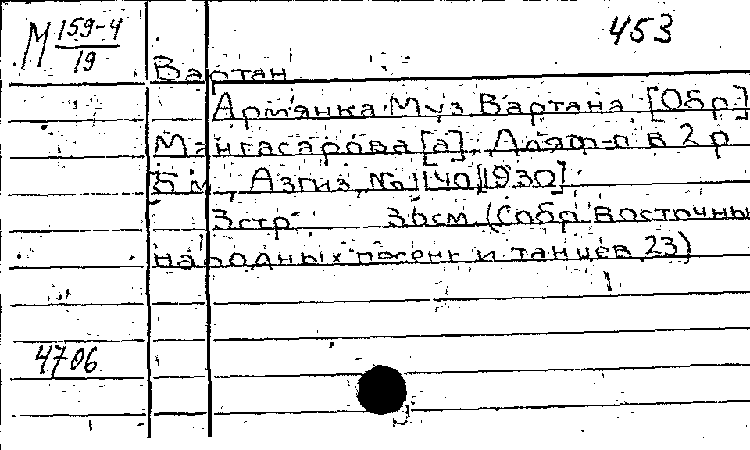 М 159-4
19
453
Вартан
Армянка. Муз. Вартана. [Обр.]
Мангасарова [а]. Для ф-п в 2 р.
Б.м., Азгиз, № 1140, [1930].
3 стр. 36 см. (Собр. восточны
народных песенк и танцев, 23)
4706